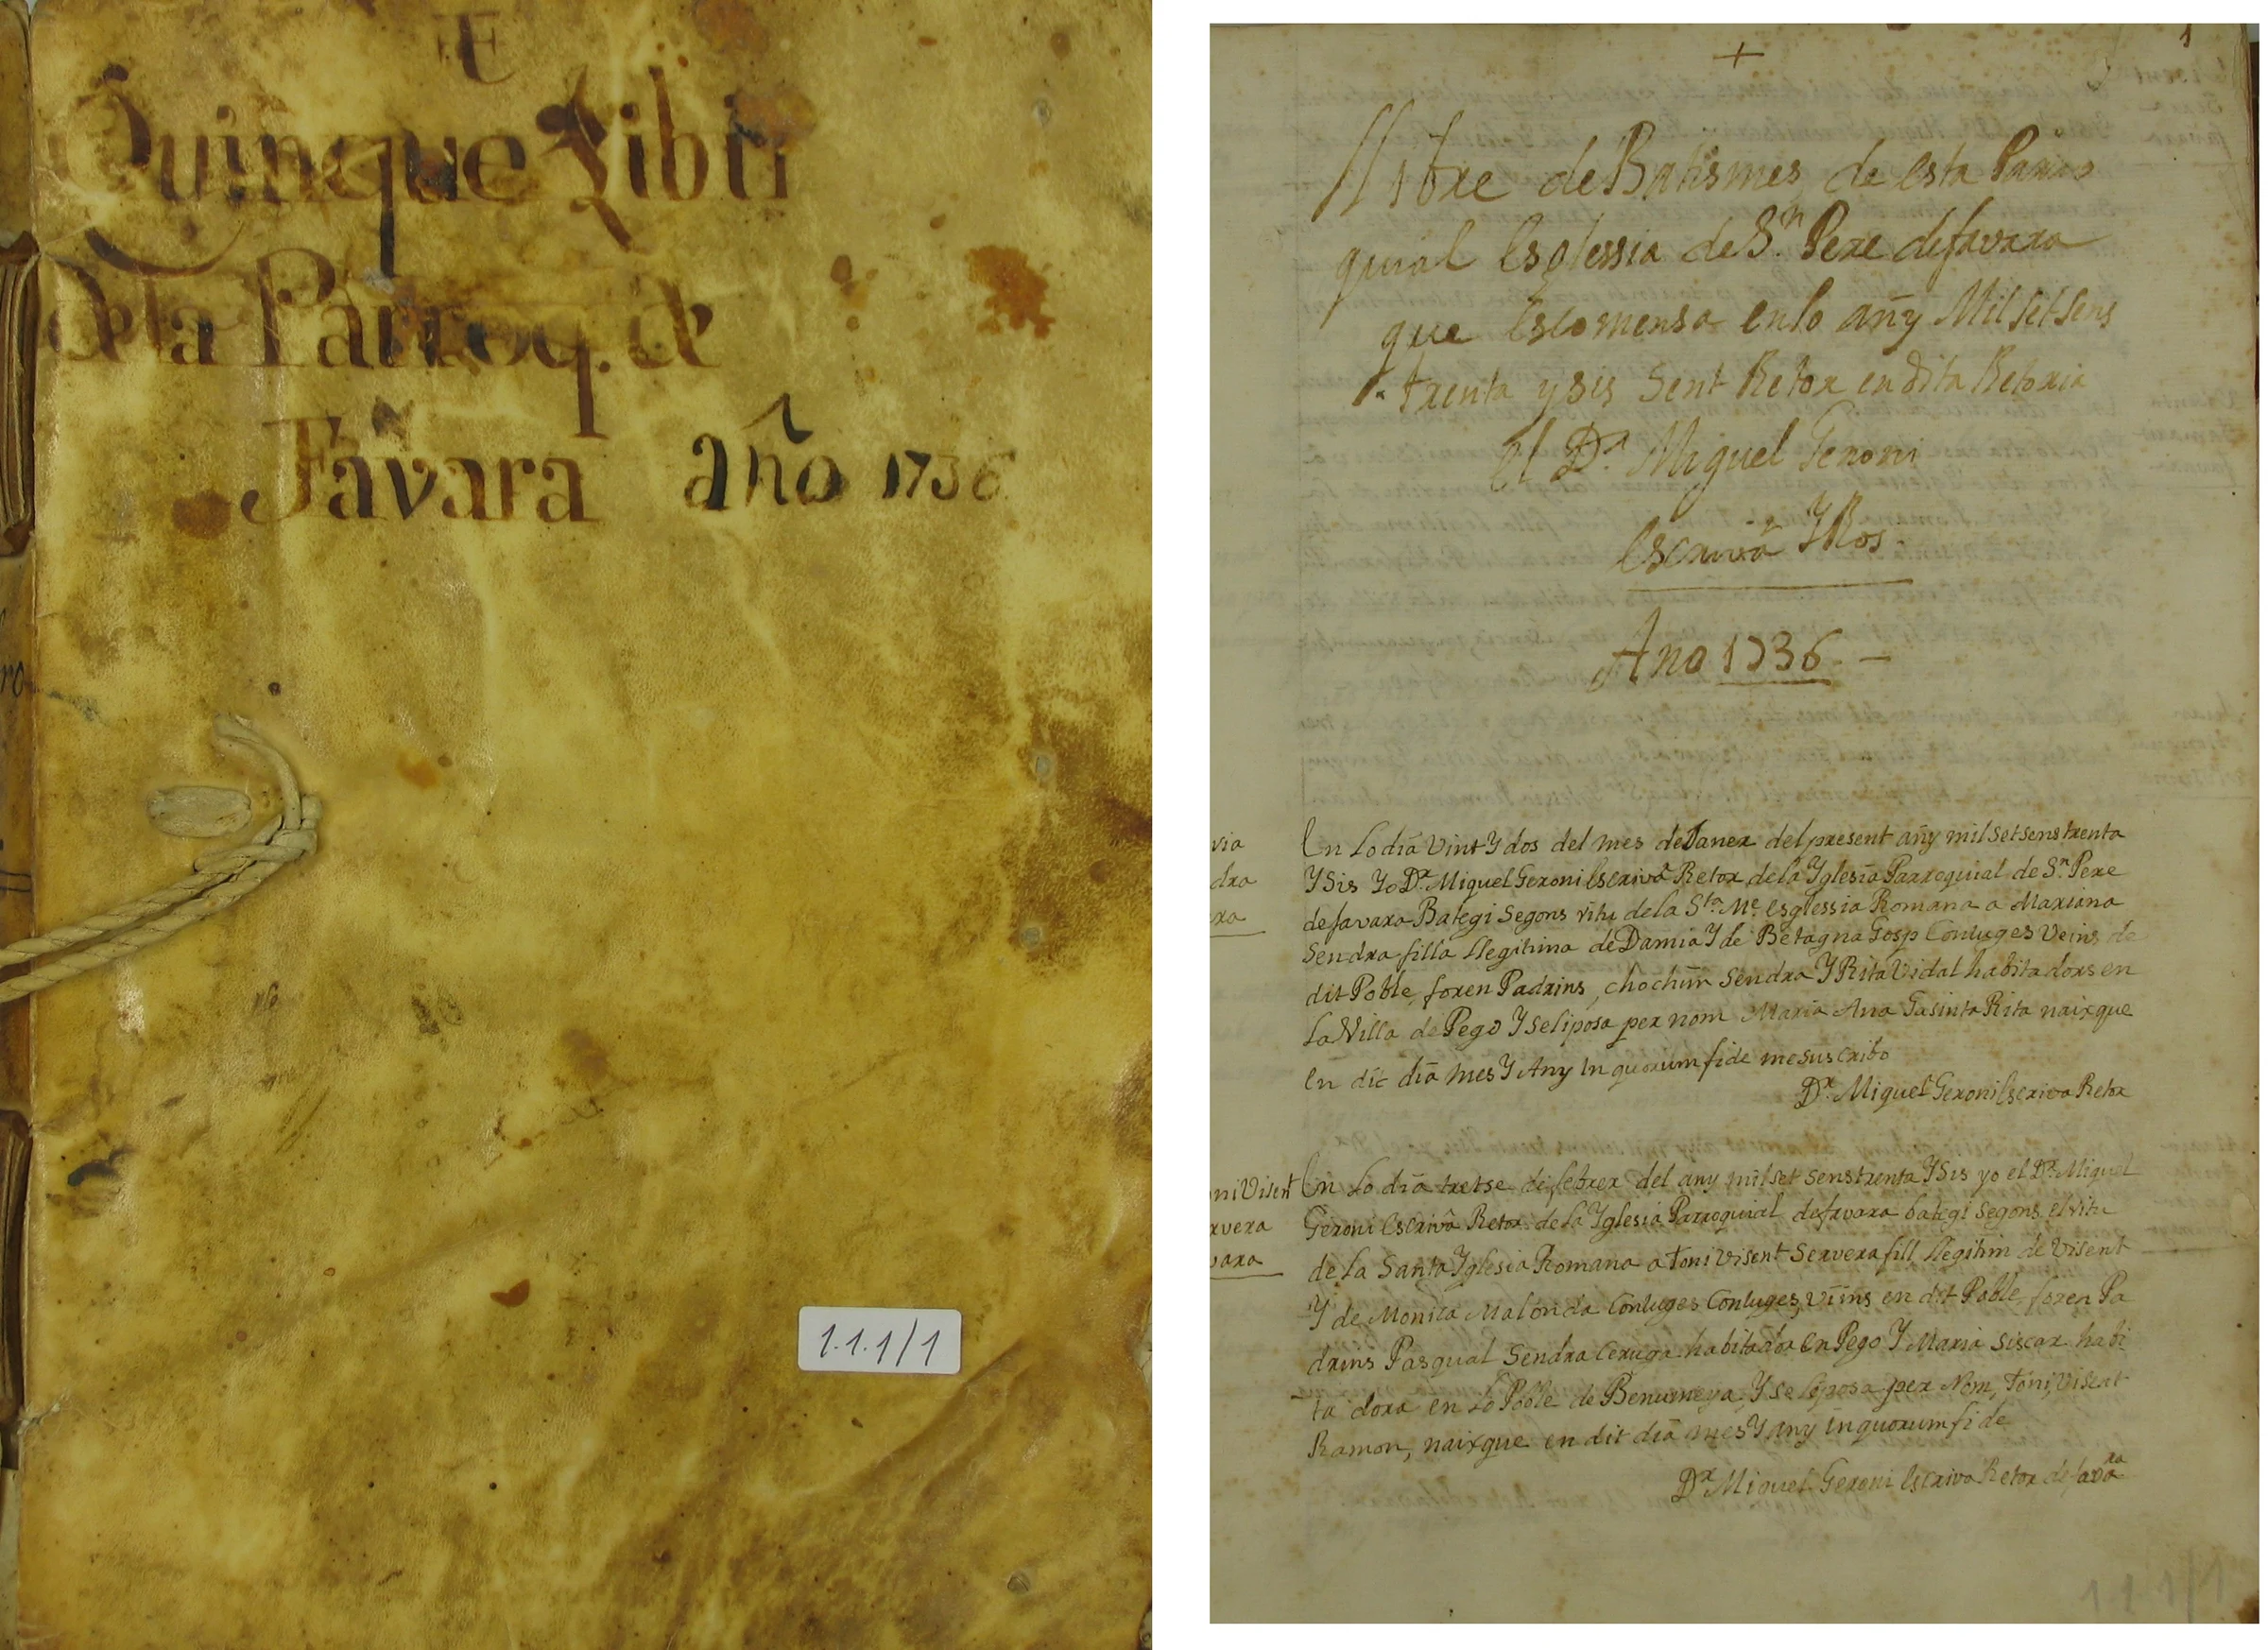 E
Quinque Libri
de la Parroq. de
Favara año 1736
1.1.1/1
1
Llibre de Batismes de esta Parro
quial Esglessia de Sn. Pere de favara
que Escomensa en lo añy Mil set sens
trenta y sis sent Retor en dita Retoria
el Dr. Miguel Geroni
Escrivá Y Ros.
Ano 1736. -
via
dra
ara
En Lo dia Vint Y dos del mes de Janer del present añy mil set sens trenta
Y Sis Yo Dr. Miguel Geroni Escrivá Retor de la Yglesia Parroquial de Sn. Pere
de favara Bategi Segons ritu de la Sta. Me. Esglessia Romana a Mariana
Sendra filla llegitima de Damia Y de Betagna Gosp Conluges Veins de
dit Poble, foren Padrins, chochim Sendra Y Rita Vidal habitadors en
La Villa de Pego Y se li posa per nom Maria Ana Gasinta Rita naixque
En dic dia mes Y Any In quorum fide me suscribo
Dr. Miguel Geroni Escriva Retor
oni Visent
rvera
vara
En Lo dia tretse de febrer del any mil set sens trenta Y Sis yo el Dr. Miguel
Geroni Escrivá Retor de la Yglesia Parroquial de favara bategi segons el ritu
de la Santa Yglesia Romana a Toni Visent Servera fill llegitim de Visent
Y de Monica Malonda Conluges Conluges, Viins en dit Poble foren Pa
drins Pasqual Sendra Ceruga habitador en Pego Y Maria Siscar habi
ta dora en Lo Poble de Benumeya, Y se li posa per Nom, Toni, Visent
Ramon, naixque en dit dia mes Y any in quorum fide
Dr Miguel Geroni Escriva Retor de favara
1 1 1/1